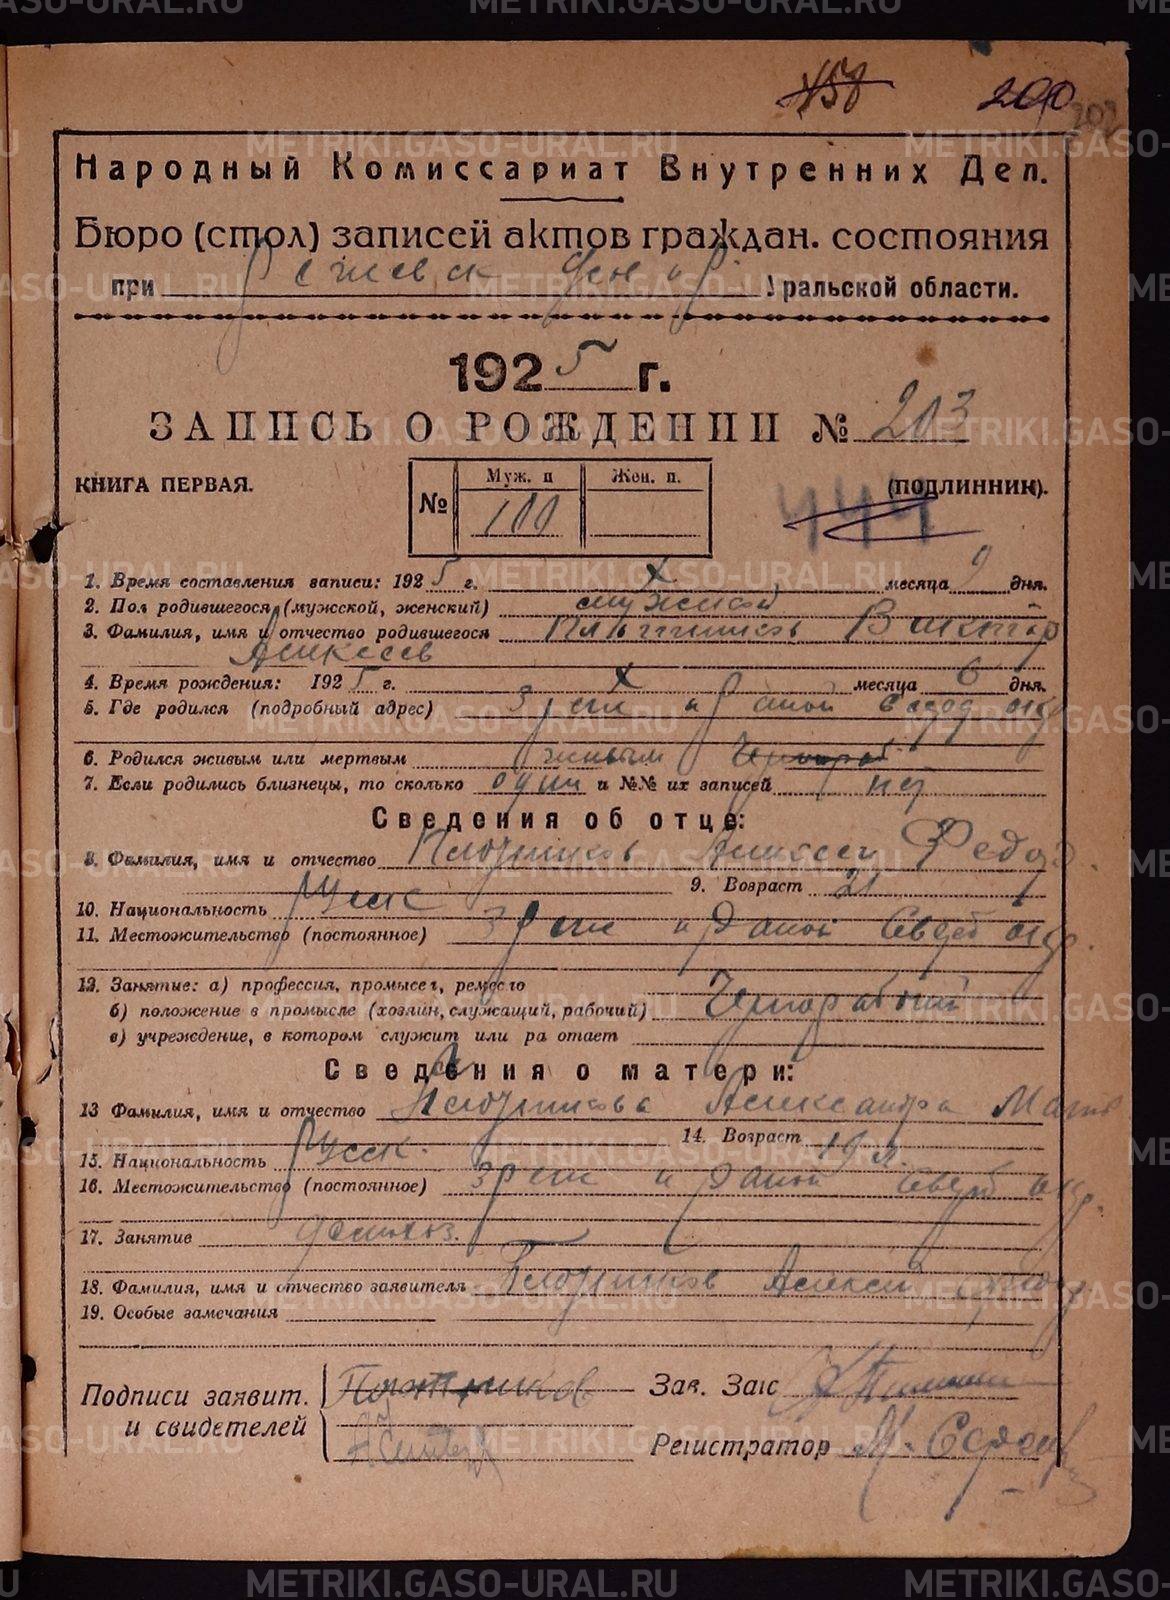 458 200 203
Народный Комиссариат Внутренних Дел.
Бюро (стол) записей актов граждан. состояния
при Режевск Уральской области.
1925 г.
ЗАПИСЬ О РОЖДЕНИИ № 203
КНИГА ПЕРВАЯ. № Муж. п 100 Жен. п. (ПОДЛИННИК).
444
1. Время составления записи: 1925 г. X месяца 9 дня.
2. Пол родившегося (мужской, женский) мужской
3. Фамилия, имя и отчество родившегося Виктор
Алексеев
4. Время рождения: 1925 г. X месяца 6 дня.
5. Где родился (подробный адрес) З реж района окр
6. Родился живым или мертвым живым
7. Если родились близнецы, то сколько один и №№ их записей нет
Сведения об отце:
8. Фамилия, имя и отчество Плотников Алексей Федор.
9. Возраст 21
10. Национальность Русск
11. Местожительство (постоянное) З реж района Сверд окр.
12. Занятие: а) профессия, промысел, ремесло
б) положение в промысле (хозяин, служащий, рабочий) Чернорабочий
в) учреждение, в котором служит или ра отает
Сведения о матери:
13 Фамилия, имя и отчество Плотникова Александра Матв
14. Возраст 19 л.
15. Национальность Русск.
16. Местожительство (постоянное) З реж района Сверд окр.
17. Занятие домохоз.
18. Фамилия, имя и отчество заявителя Плотников Алексей Федор
19. Особые замечания
Подписи заявит. Плотников Зав. Загс
и свидетелей Регистратор М.
METRIKI.GASO-URAL.RU